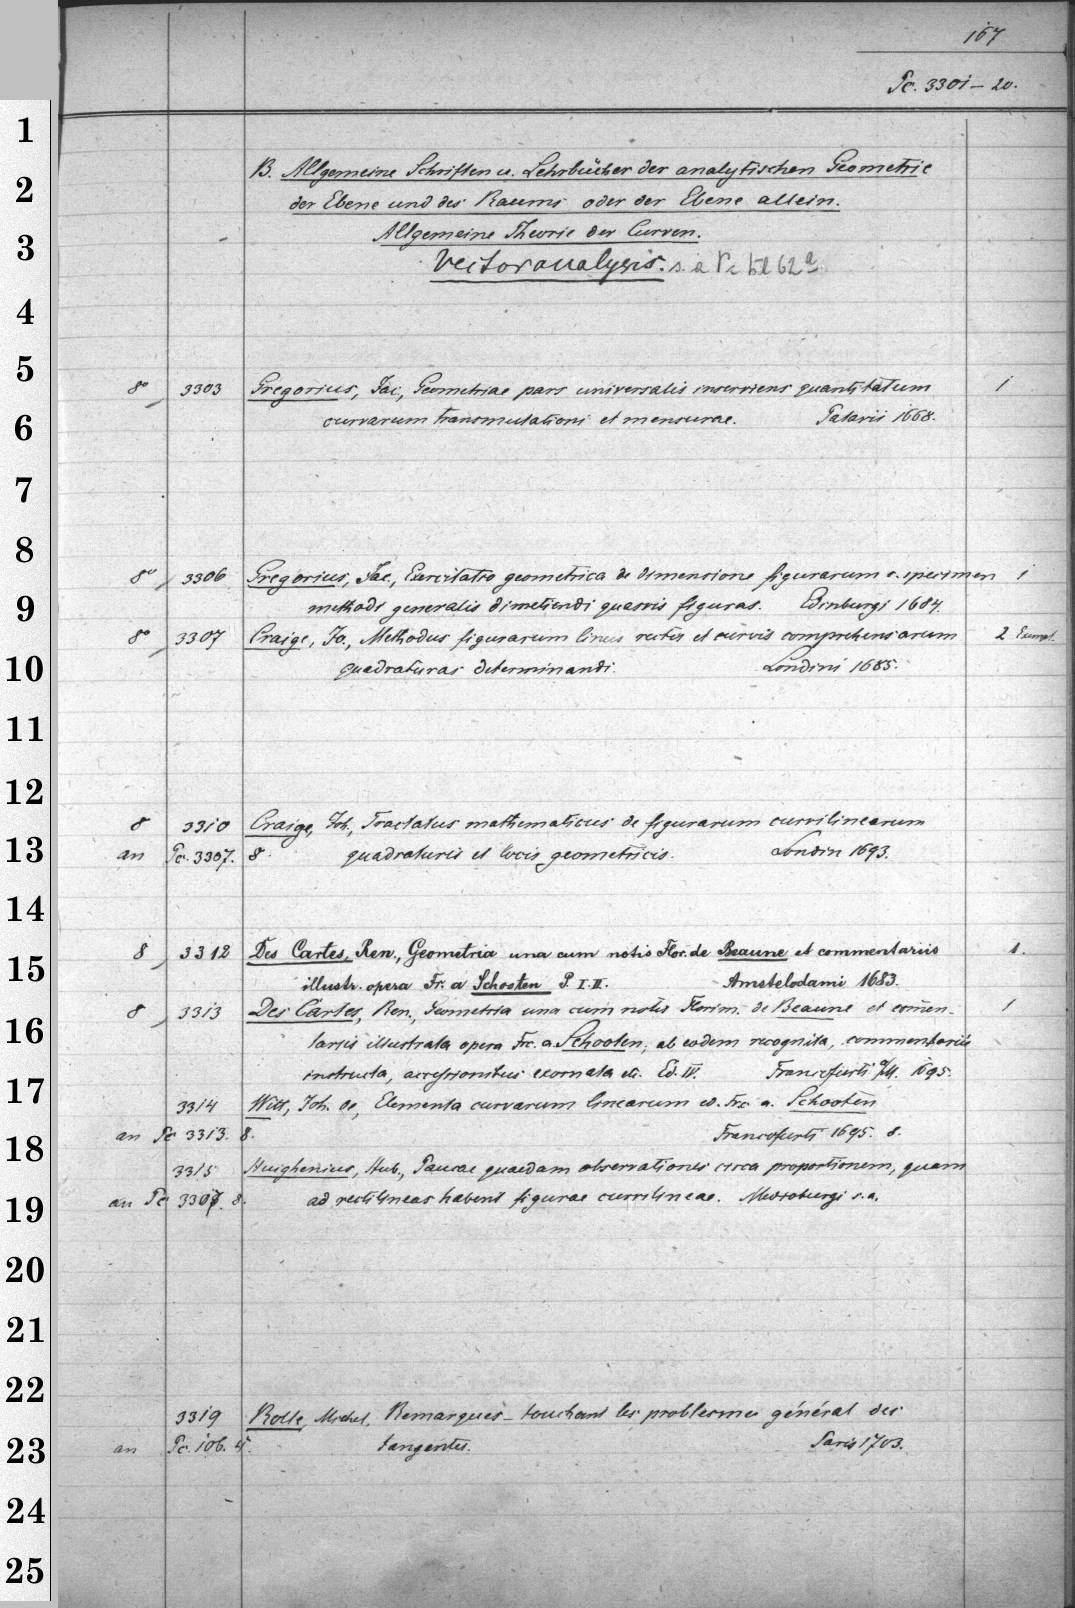 167
Pc. 3301-20.
B. Allgemeine Schriften u. Lehrbücher der analytischen Geometrie
der Ebene und des Raums oder der Ebene allein.
Allgemeine Theorie der Curven.
Vectoranalysis. s. a Pc bl 62a
8° 3303 Gregorius, Jac, Geometriae pars universalis inserviens quantitatum 1
curvarum transmutationi et mensurae. Patavii 1668.
8° 3306 Gregorius, Jac., Exercitatio geometrica de dimensione figurarum s. specimen 1
methodi generalis dimetiendi quasvis figuras. Edinburgi 1684.
8° 3307 Craige, Jo., Methodus figurarum lineis rectis et curvis comprehensarum 2 Exempl.
quadraturas determinandi. Londini 1685.
8 3310 Craige, Joh., Tractatus mathematicus de figurarum curvilinearum
an Pc. 3307. 8. quadraturis et locis geometricis. Londin 1693.
8 3312 Des Cartes, Ren., Geometria una cum notis Flor. de Beaune et commentariis 1.
illustr. opera Fr. a Schooten P. I. II. Amstelodami 1683.
8 3313 Des Cartes, Ren., Geometria una cum notis Florim. de Beaune et com̄en- 1
tariis illustrata opera Frc. a Schooten, ab eodem recognita, commentariis
instructa, accessionibus exornata etc. Ed. IV. Francofurti a/M. 1695.
3314 Witt, Joh. de, Elementa curvarum linearum ed. Frc. a. Schooten
an Pc 3313. 8. Francofurti 1695. 8.
3315 Huighenius, Hub., Paucae quaedam observationes circa proportionem, quam
an Pc 3307. 8. ad rectilineas habent figurae curvilineae. s. a.
3319 Rolle, Michel, Remarques touchant le problesme général des
an Pc. 106. 4°. tangentes. Paris 1703.
1
2
3
4
5
6
7
8
9
10
11
12
13
14
15
16
17
18
19
20
21
22
23
24
25